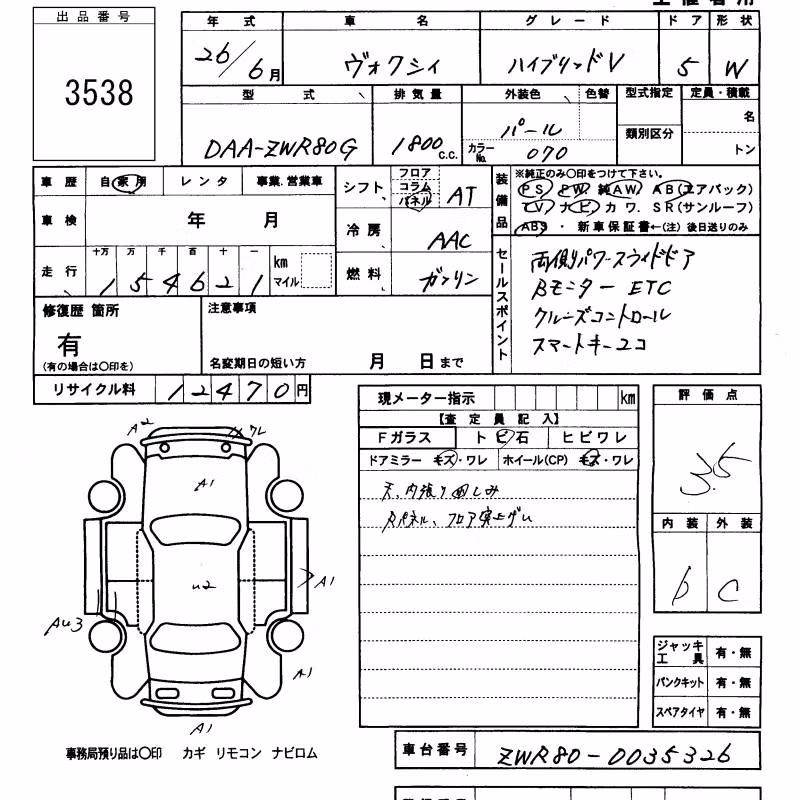 出品番号
3538
年式 車名 グレード ドア 形状
26/6月 ヴォクシィ ハイブリッドV 5 W
型式 排気量 外装色 色替 型式指定 定員・積載
DAA-ZWR80G 1800c.c. パール 類別区分 名
カラーNo. 070 トン
車歴 自家用 レンタ 事業.営業車
車検 年 月
走行 十万 万 千 百 十 一
154621 km マイル
シフト フロア コラム パネル AT
冷房 AAC
燃料 ガソリン
装備品 ※純正のみ○印をつけて下さい。
PS PW 純AW AB(エアバック)
TV ナビ カワ. SR(サンルーフ)
ABS ・ 新車保証書←(注) 後日送りのみ
セールスポイント
両側パワースライドドア
Bモニター ETC
クルーズコントロール
スマートキー2コ
修復歴 箇所
有
(有の場合は○印を)
注意事項
名変期日の短い方 月 日まで
リサイクル料 12470円
現メーター指示 km
【査定員記入】
Fガラス トビ石 ヒビワレ
ドアミラー キズ・ワレ ホイール(CP) キズ・ワレ
天、内張り回しみ
Rパネル、フロア突上げい
評価点
3.5
内装 外装
b C
A2 メワレ
A1
u2
A1
Au3
A1
A1
ジャッキ工具 有・無
パンクキット 有・無
スペアタイヤ 有・無
事務局預り品は○印 カギ リモコン ナビロム
車台番号 ZWR80-0035326